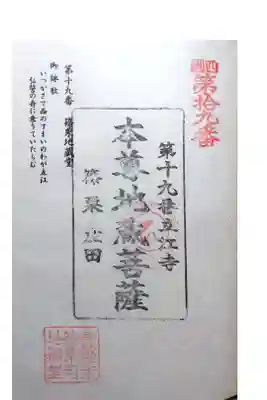 四国
第拾九番
第十九番立江寺
本尊地蔵菩薩
篠栗 田
第十九番 篠栗地蔵堂
御詠歌
いつかさて西のすまいのわが立江
弘誓の舟に乗りていたらむ